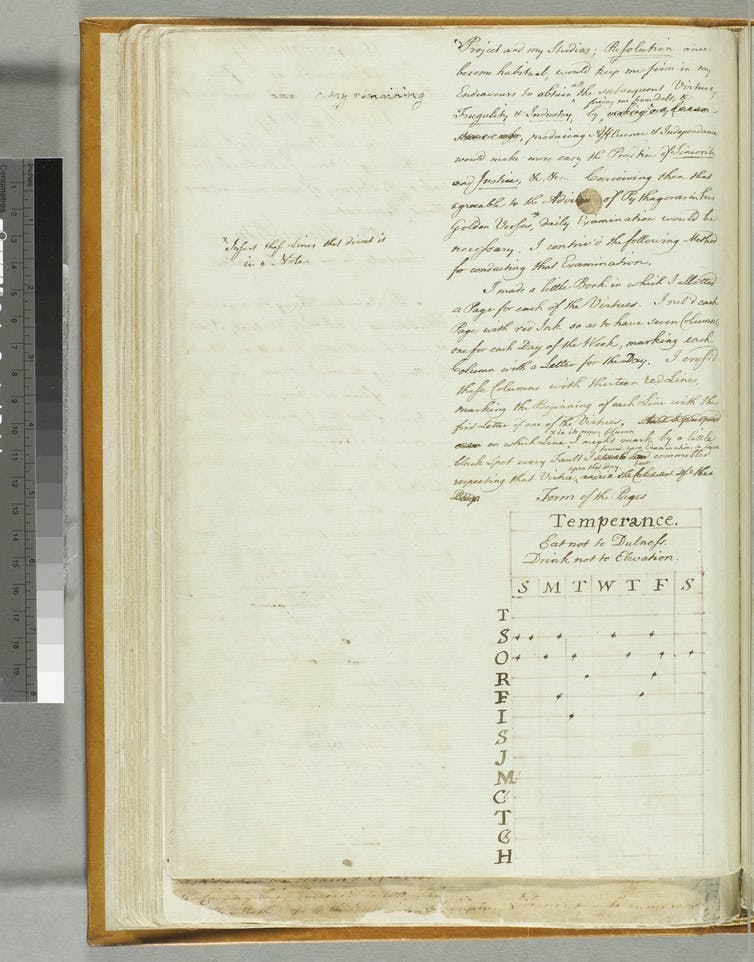 Project and my Studies; Resolution once
become habitual, would keep me firm in my
Endeavours to obtain all the subsequent Virtues;
my remaining
freeing me from Debt, &
Frugality & Industry, by
producing Affluence & Independance
would make more easy the Practice of Sincerity
and Justice, &c. &c. Conceiving then that
agreable to the Advice of Pythagoras in his
Golden Verses, daily Examination would be
necessary, I contriv'd the following Method
for conducting that Examination.
Insert those Lines that direct it
in a Note
I made a little Book in which I allotted
a Page for each of the Virtues. I rul'd each
Page with red Ink so as to have seven Columns,
one for each Day of the Week, marking each
Column with a Letter for the Day. I cross'd
these Columns with thirteen red Lines,
marking the Beginning of each Line with the
first Letter of one of the Virtues,
& in its proper Column
on which Line I might mark by a little
black Spot every Fault I committed
respecting that Virtue
upon that Day.
Form of the Pages
Temperance.
Eat not to Dulness.
Drink not to Elevation.
S M T W T F S
T
S
O
R
F
I
S
J
M
C
T
C
H